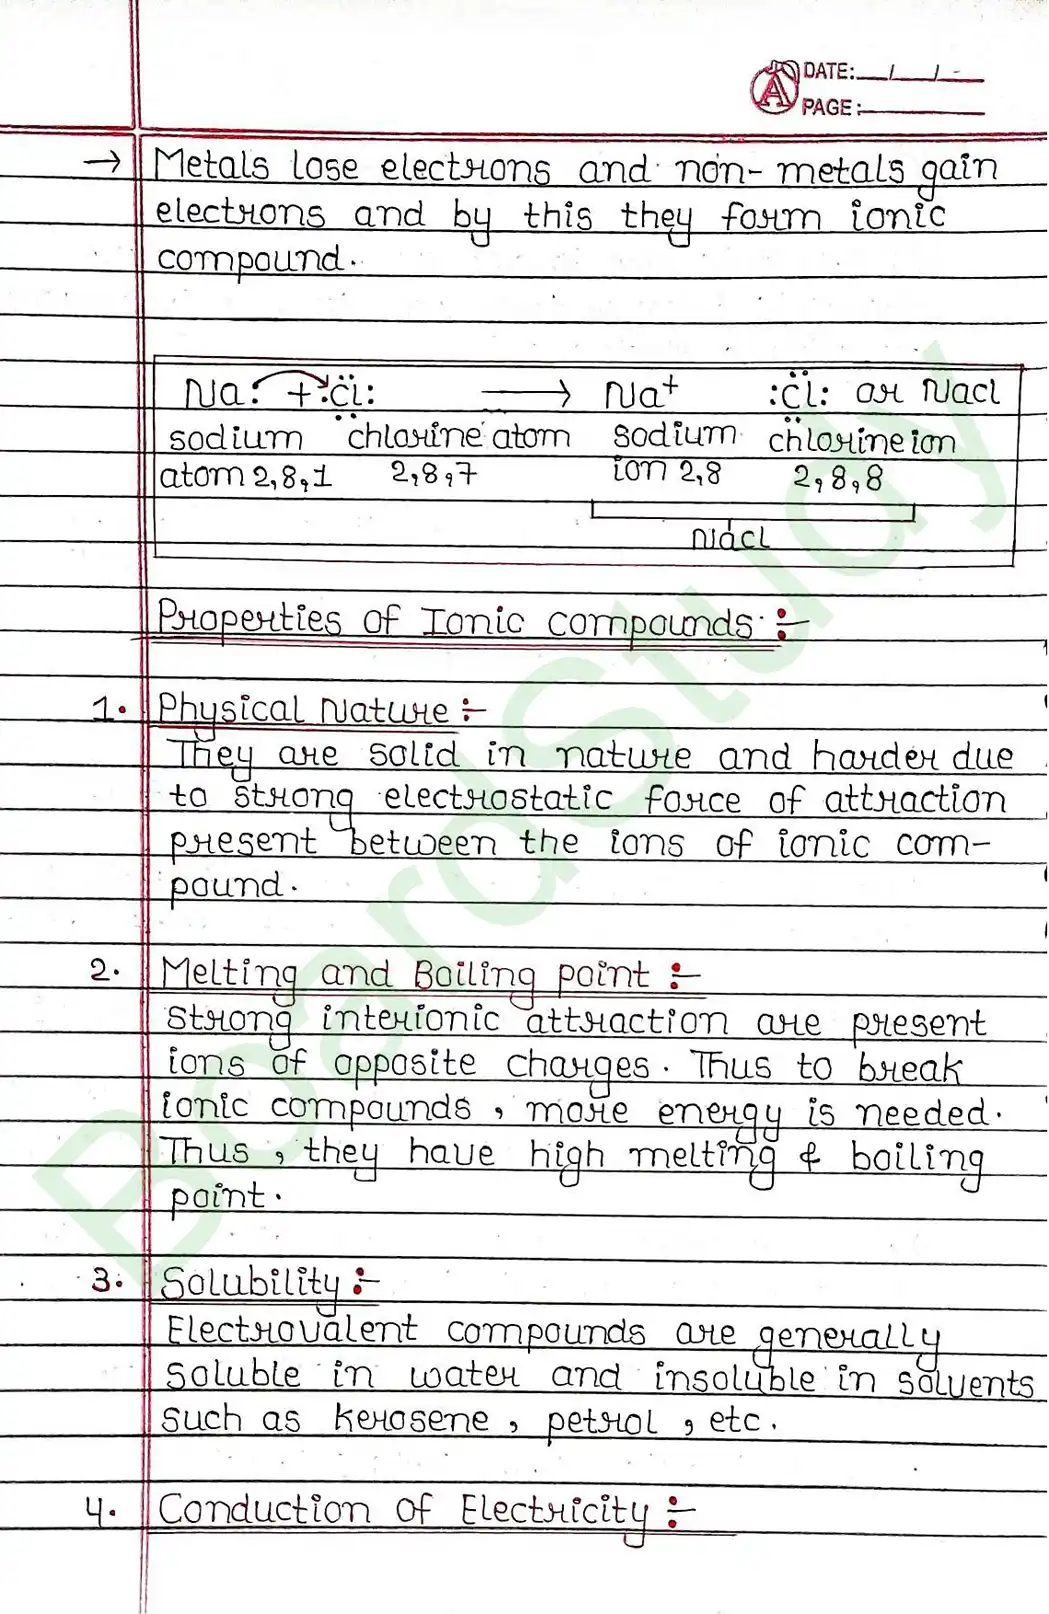 DATE: / /
PAGE:
→ Metals lose electrons and non-metals gain
electrons and by this they form ionic
compound.
Na: + :Cl: → Na+ :Cl: or Nacl
sodium chlorine atom sodium chlorine ion
atom 2,8,1 2,8,7 ion 2,8 2,8,8
Nacl
Properties of Ionic compounds :-
1. Physical Nature :-
They are solid in nature and harder due
to strong electrostatic force of attraction
present between the ions of ionic com-
pound.
2. Melting and Boiling point :-
Strong interionic attraction are present
ions of opposite charges. Thus to break
ionic compounds, more energy is needed.
Thus, they have high melting & boiling
point.
3. Solubility :-
Electrovalent compounds are generally
soluble in water and insoluble in solvents
such as kerosene, petrol, etc.
4. Conduction of Electricity :-
BoardStudy